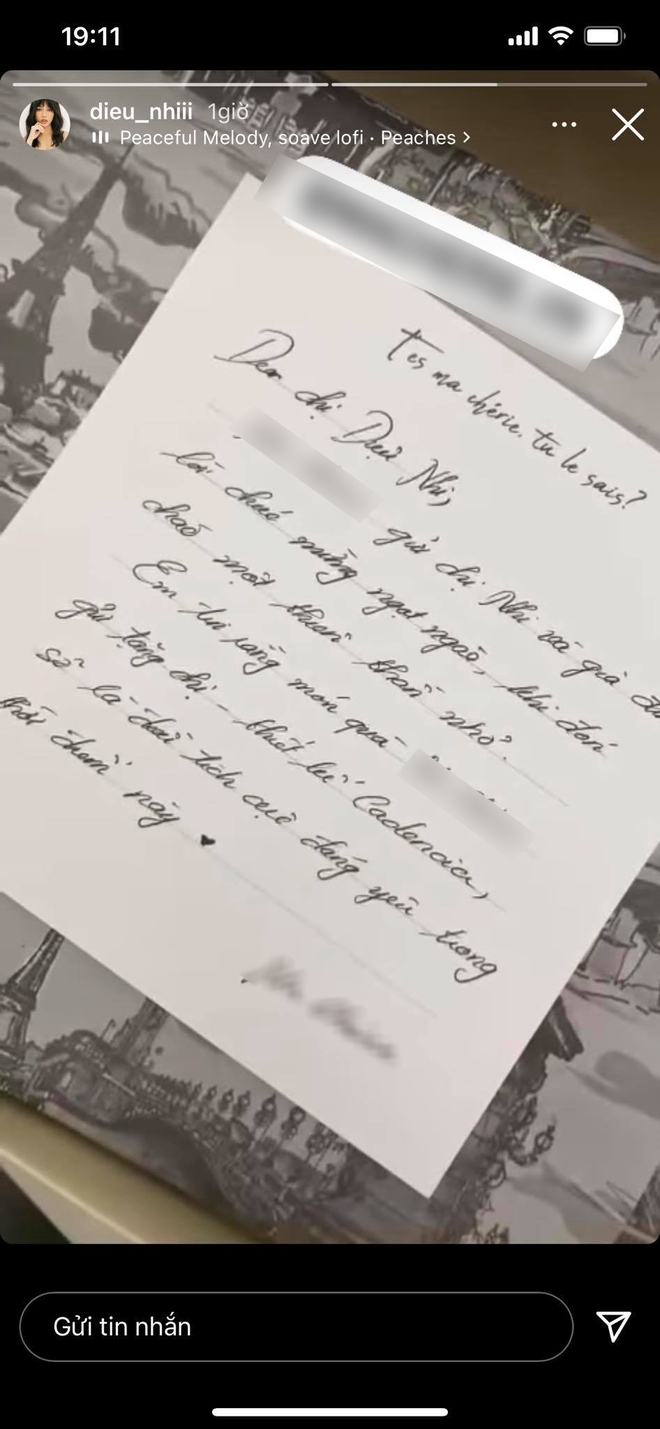 19:11
dieu_nhiii 1giờ
Peaceful Melody, soave lofi · Peaches
T'es ma chérie. tu le sais?
Dear chị Diệu Nhi,
gửi chị Nhi và gia
lời chúc mừng ngọt ngào, khi đón
chào một thiên thần nhỏ.
Em tin rằng món quà
gửi tặng chị - thiết kế Cadencia,
sẽ là dấu tích cực đáng yêu trong
thời điểm này ♥
Gửi tin nhắn